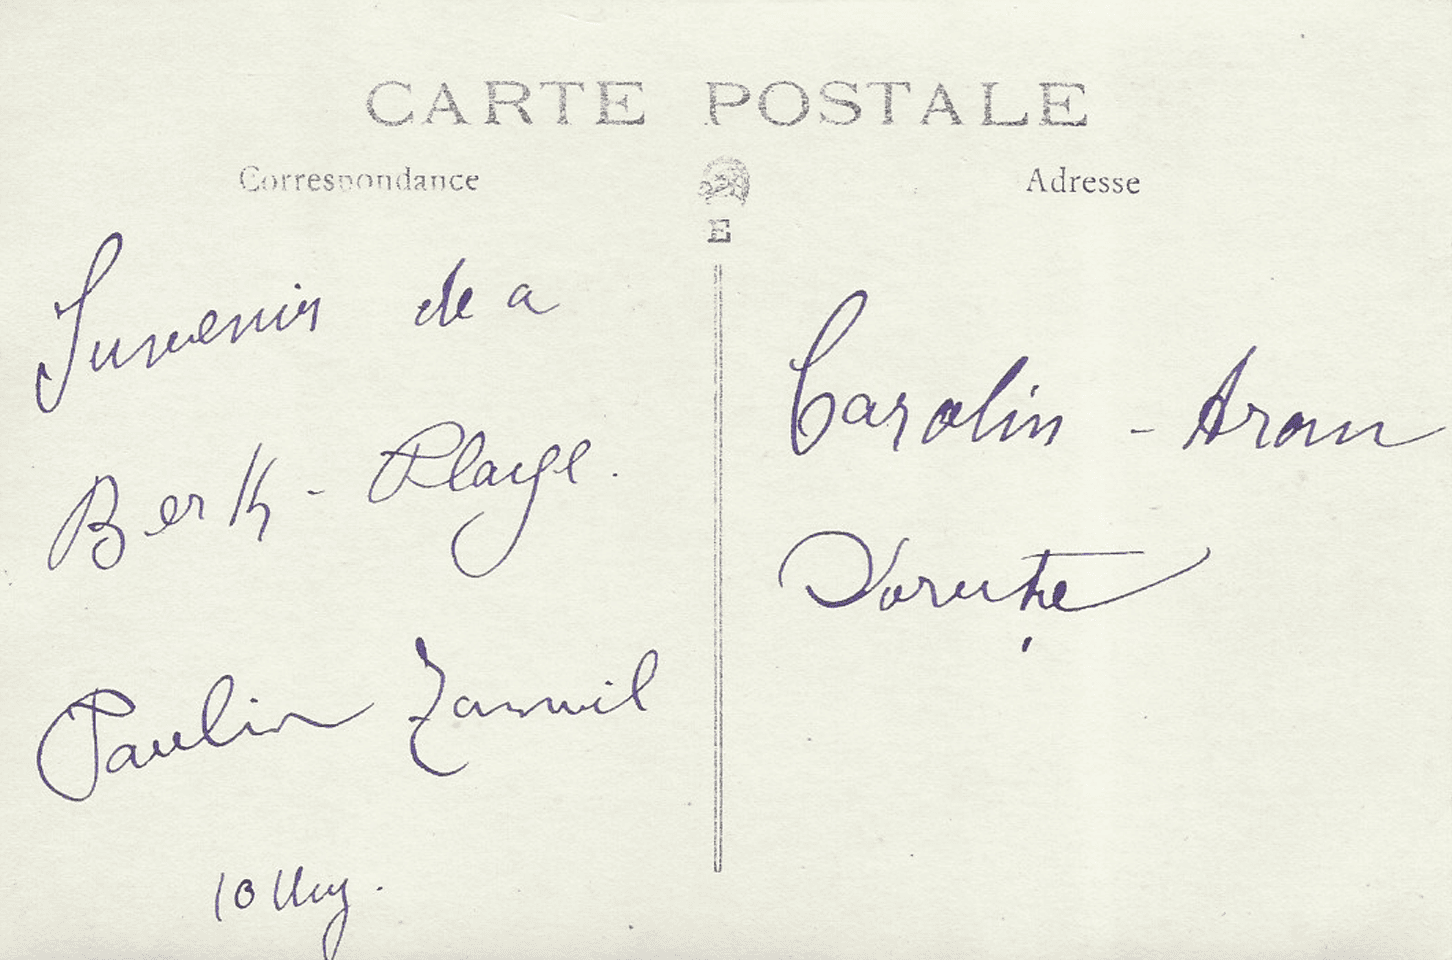 CARTE POSTALE
Correspondance
Adresse
E
Suvenir de a
Berk-Plage.
Paulin Zanvil
Carolin - Aron
10